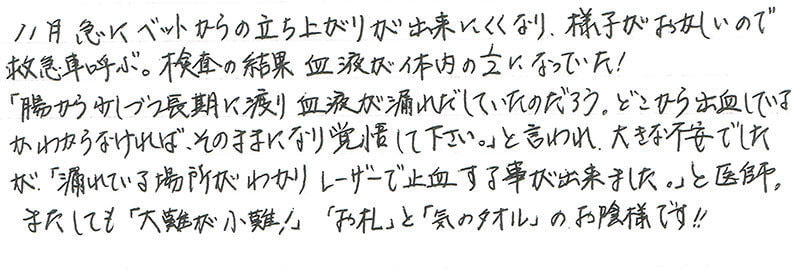 11月 急にベットからの立ち上がりが出来にくくなり、様子がおかしいので
救急車呼ぶ。検査の結果 血液が体内の1/2になっていた!
「腸から少しづつ長期に渡り 血液が漏れだしていたのだろう。どこから出血している
かわからなければ、そのままになり覚悟して下さい。」と言われ、大きな不安でした
が、「漏れている場所がわかり レーザーで止血する事が出来ました。」と医師。
またしても「大難が小難!」 「お札」と「気のタオル」のお陰様です!!